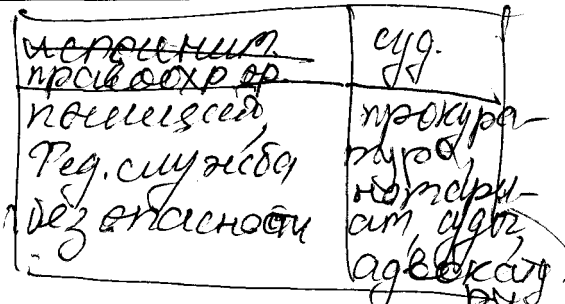 правоохр ор.
суд.
полиция,
Фед. служба
безопасности
прокура-
тура,
нотари-
ат, суды,
адвокату
ры